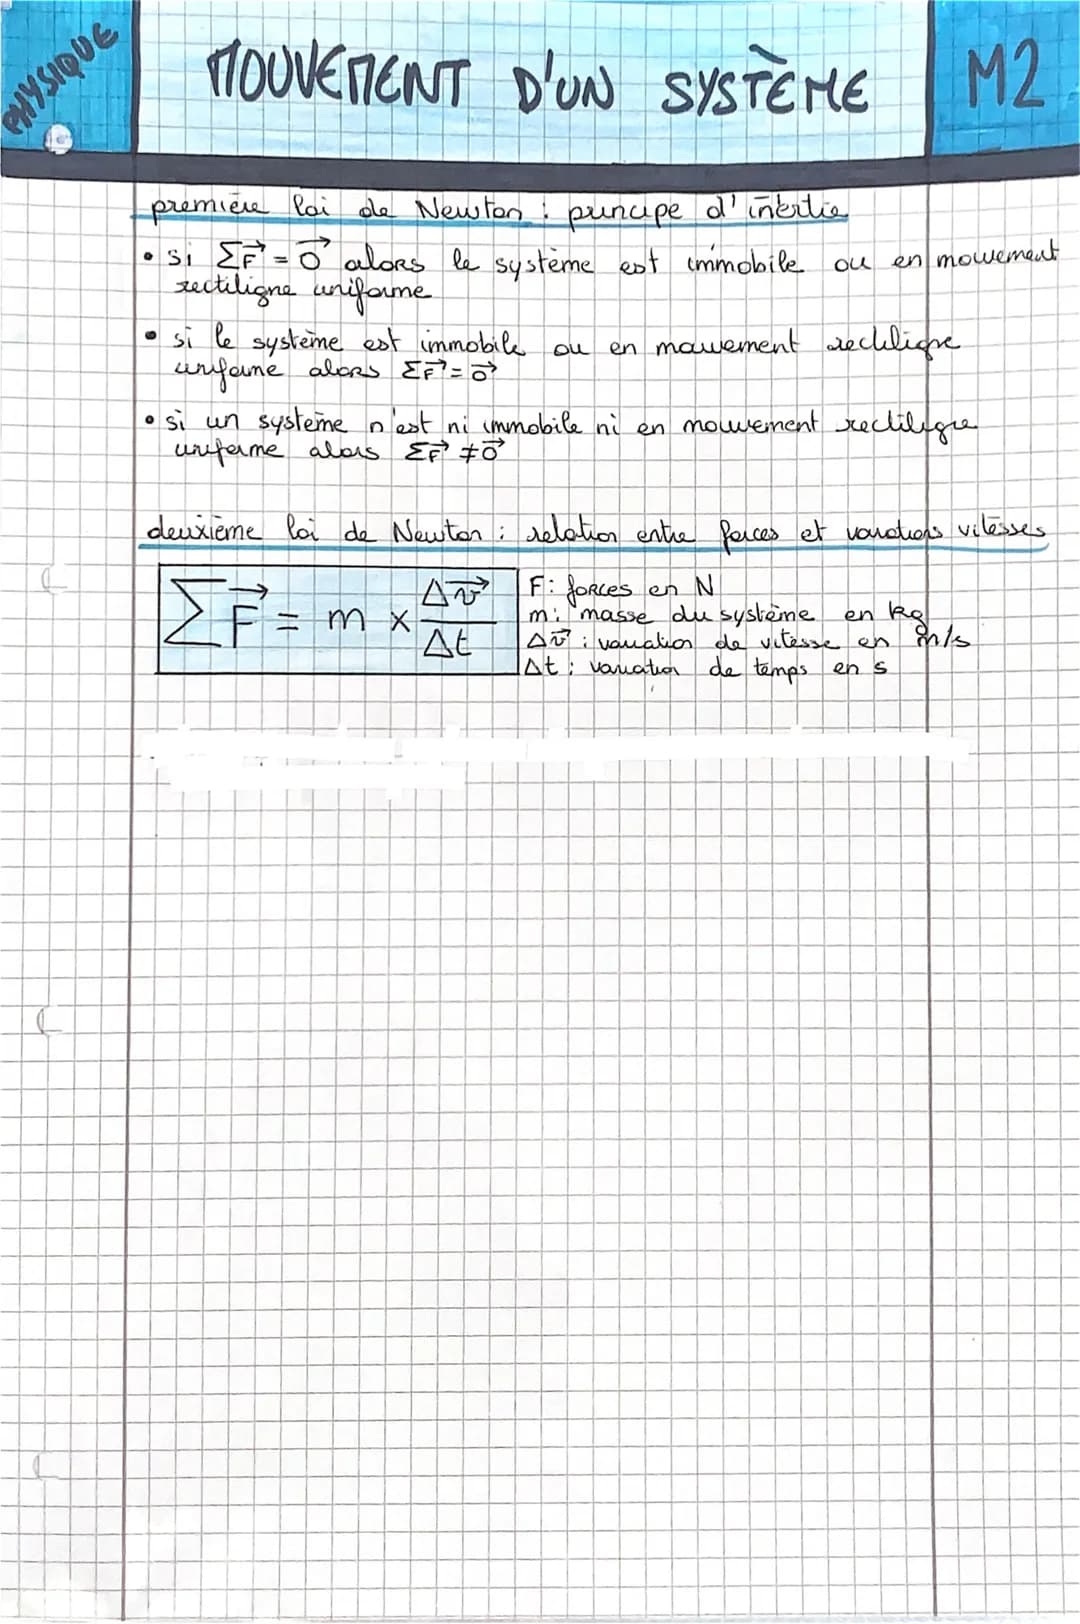 PHYSIQUE
MOUVEMENT D'UN SYSTÈME
M2
première loi de Newton : principe d'inertie
• si ΣF⃗ = 0⃗ alors le système est immobile ou en mouvement
rectiligne uniforme
• si le système est immobile ou en mouvement rectiligne
uniforme alors ΣF⃗ = 0⃗
• si un système n'est ni immobile ni en mouvement rectiligne
uniforme alors ΣF⃗ ≠ 0⃗
deuxième loi de Newton : relation entre forces et variations vitesses
ΣF⃗ = m × Δv⃗/Δt
F : forces en N
m : masse du système en kg
Δv⃗ : variation de vitesse en m/s
Δt : variation de temps en s